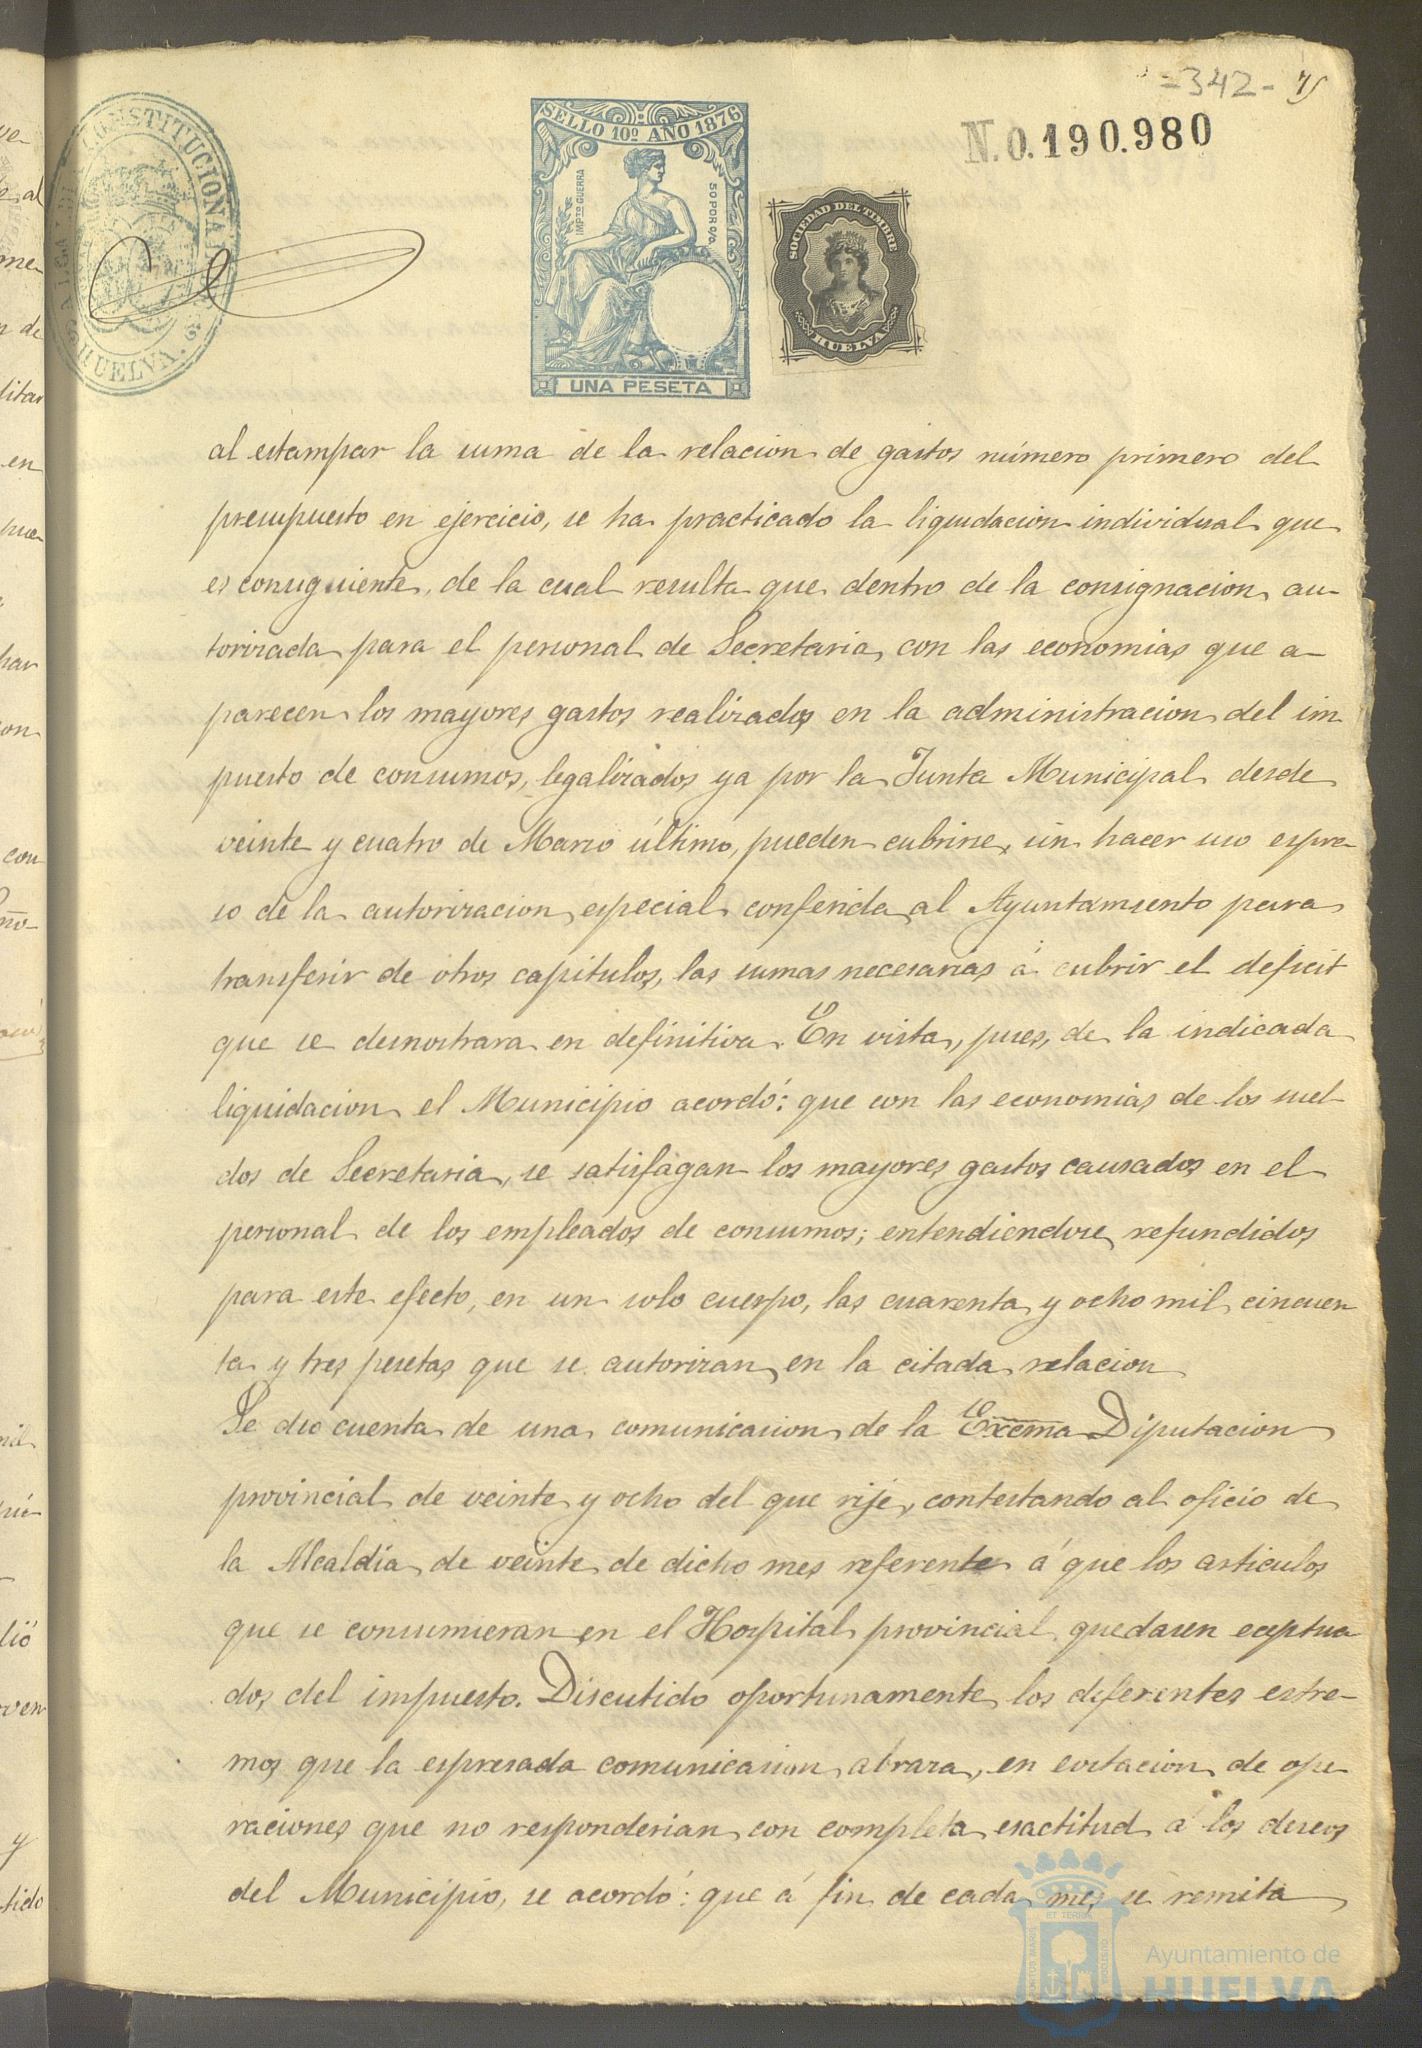 =342- 75
N.0.190.980
ALCALDIA CONSTITUCIONAL
HUELVA
SELLO 10º AÑO 1876
IMPTO GUERRA
50 POR C/O
UNA PESETA
SOCIEDAD DEL TIMBRE
HUELVA
al estampar la suma de la relacion de gastos número primero del
presupuesto en ejercicio, se ha practicado la liquidacion individual que
es consiguiente, de la cual resulta que dentro de la consignacion au-
torizada para el personal de Secretaria, con las economias que a-
parecen los mayores gastos realizados en la administracion del im-
puesto de consumos, legalizados ya por la Junta Municipal desde
veinte y cuatro de Marzo último, pueden cubrirse, sin hacer uso espre-
so de la autorizacion especial conferida al Ayuntamiento para
transferir de otros capitulos, las sumas necesarias á cubrir el deficit
que se demostrara en definitiva. En vista, pues, de la indicada
liquidacion el Municipio acordó: que con las economias de los suel-
dos de Secretaria, se satisfagan los mayores gastos causados en el
personal de los empleados de consumos; entendiendose refundidos
para este efecto, en un solo cuerpo, las cuarenta y ocho mil cincuen
ta y tres pesetas que se autorizan en la citada relacion
Se dio cuenta de una comunicacion de la Excma Diputacion
provincial de veinte y ocho del que rije, contestando al oficio de
la Alcaldía de veinte de dicho mes referente á que los articulos
que se consumieran en el Hospital provincial quedasen eceptua
dos del impuesto. Discutido oportunamente los diferentes estre-
mos que la espresada comunicacion abraza, en evitacion de ope-
raciones que no responderian con completa esactitud á los deseos
del Municipio, se acordó: que á fin de cada mes se remita
Ayuntamiento de
HUELVA